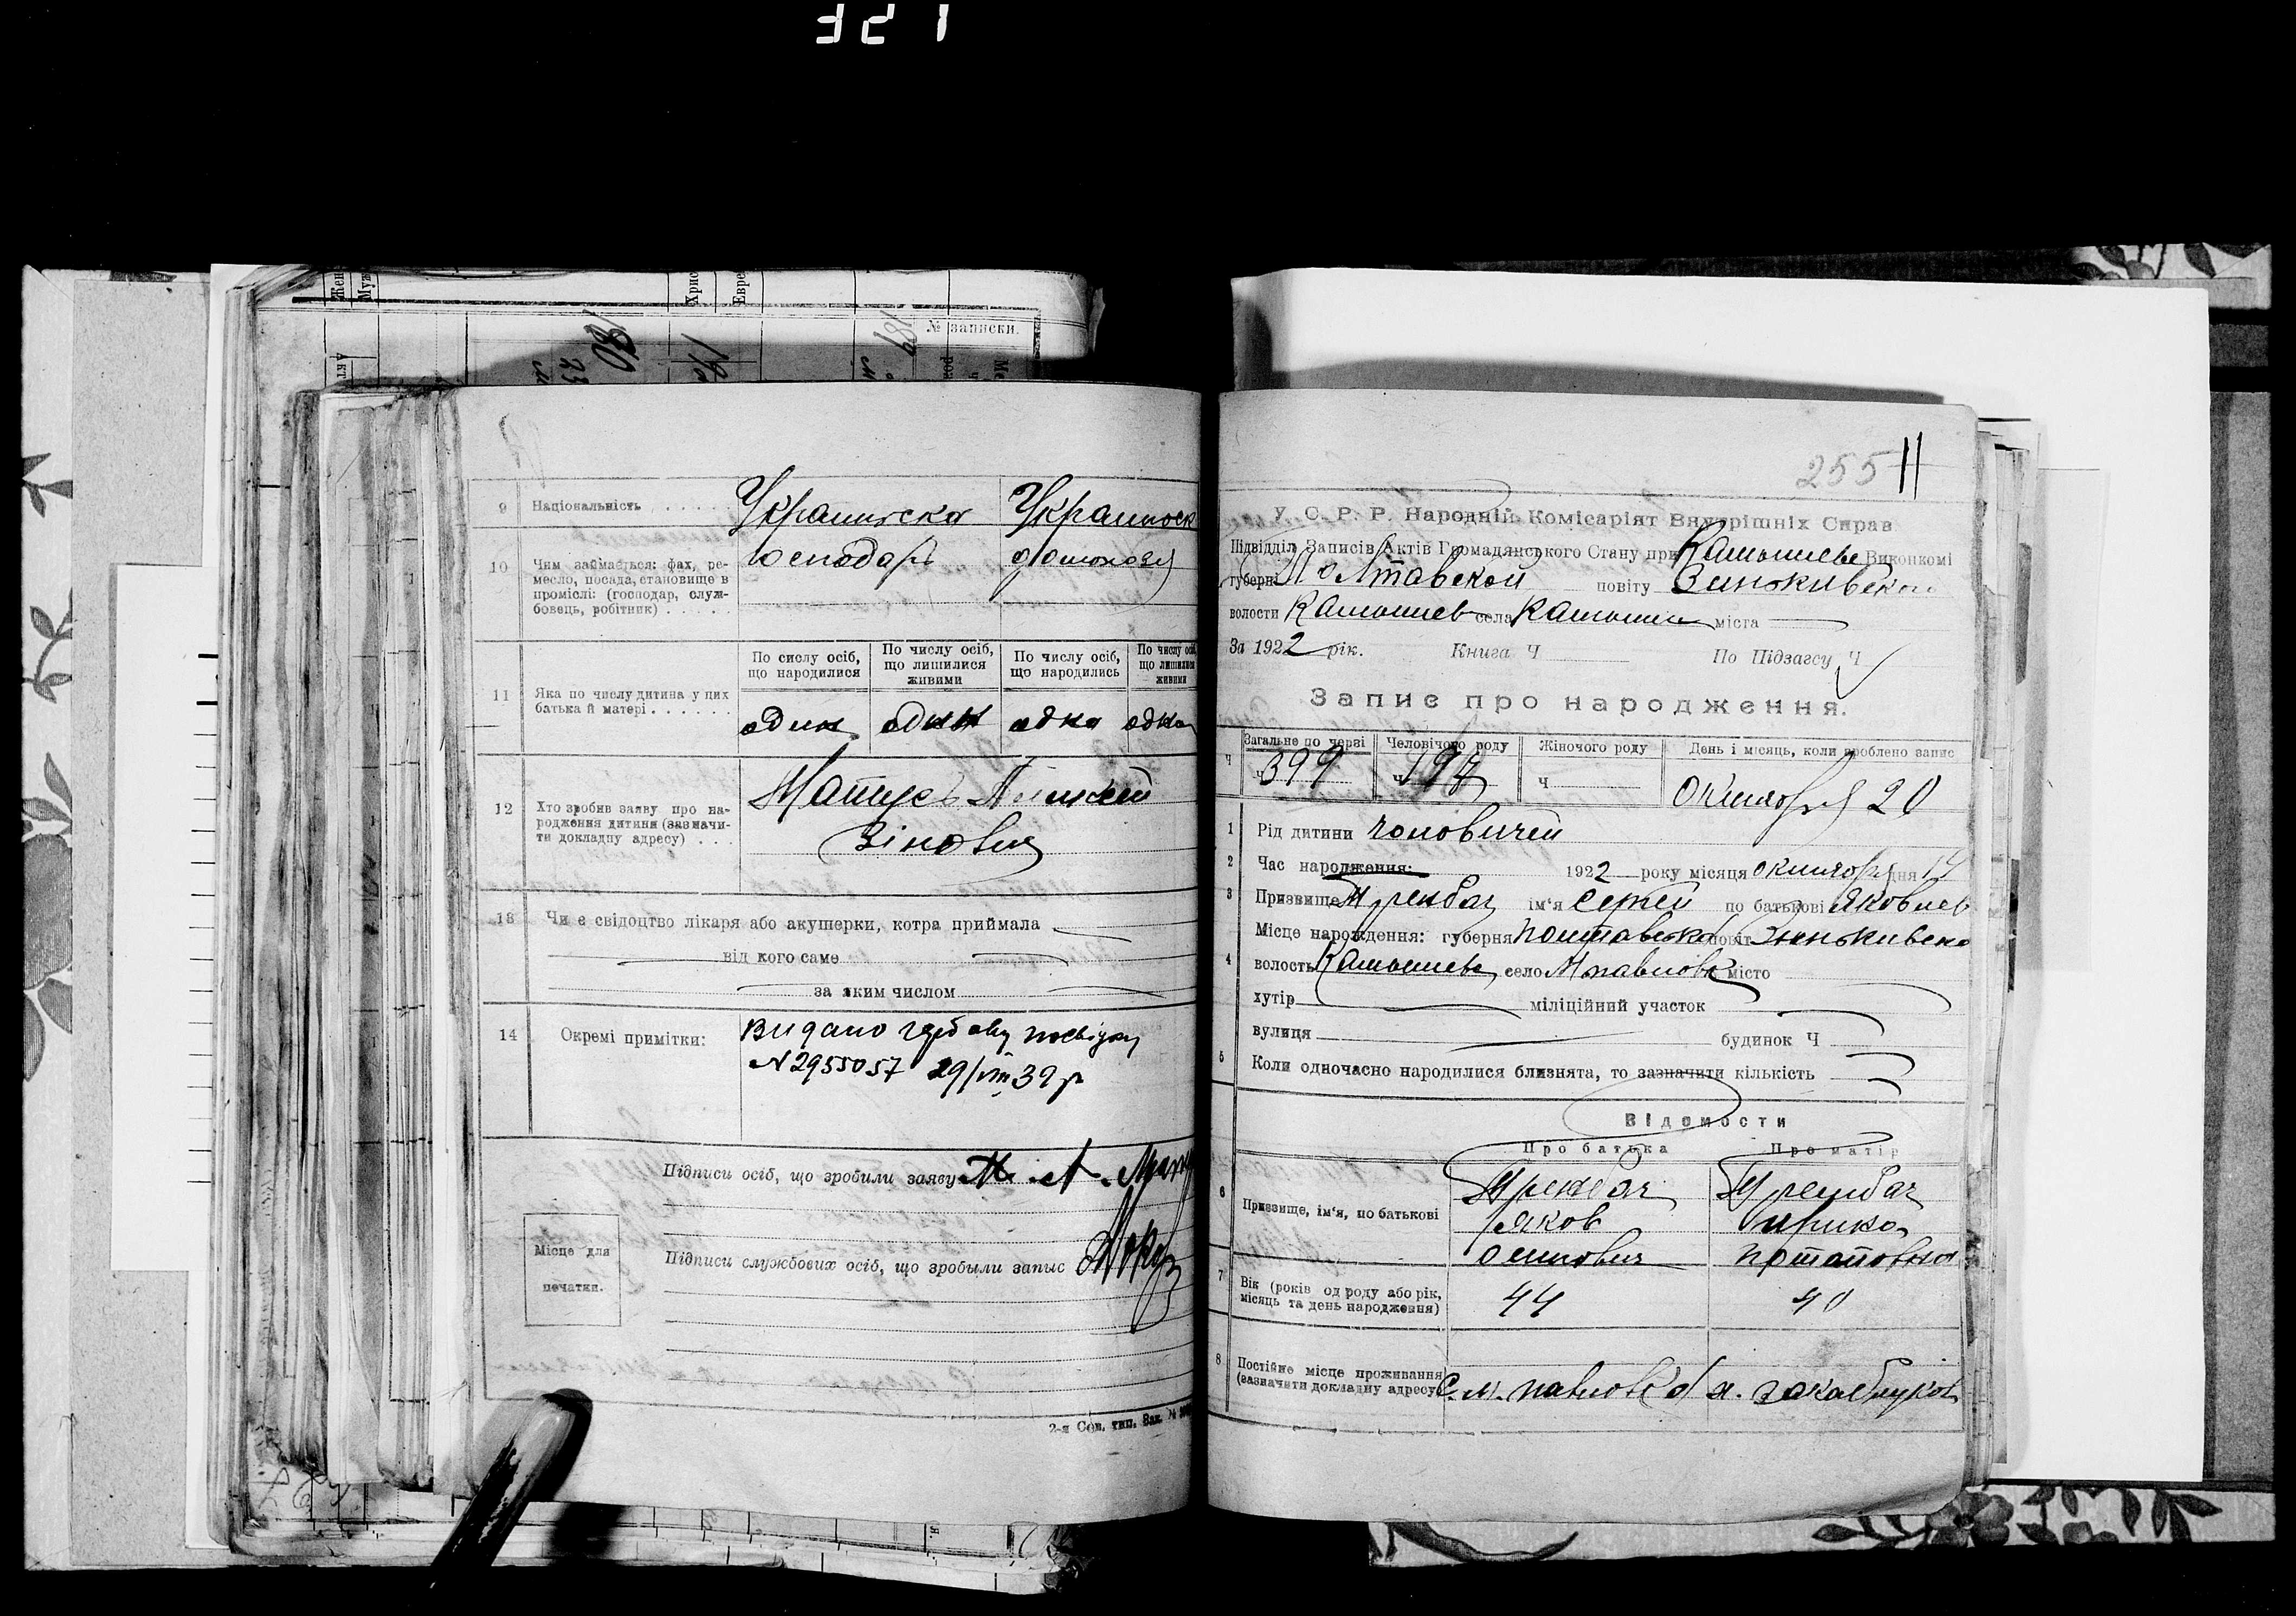 321
Жен
Муж
Хрис
Евре
№ записки.
180
189
9 Національність Украинска Украинск
10 Чим займається: фах, ре-
месло, посада, становище в
проміслі: (господар, служ-
бовець, робітник)
господарь домохозя
11 Яка по числу дитина у цих
батька й матері
По сислу осіб,
що народилися
По числу осіб,
що лишилися
живими
По числу осіб,
що народились
По числу осіб,
що лишилися
живими
один один одна одна
12 Хто зробив заяву про на-
родження дитини (зазначи-
ти докладну адресу)
Зіновия
13 Чи є свідоцтво лікаря або акушерки, котра приймала
від кого саме
за яким числом
14 Окремі примітки:
Видано гербову посвідку
№2955057 29/VIII 39 р
Підписи осіб, що зробили заяву
Місце для
печатки.
Підписи службових осіб, що зробыли запыс
2-я Сов. тип. Зак. №
255 11
У. С. Р. Р. Народній Комісаріят Внутрішніх Справ
Підвідділ Записів Актів Громадянського Стану при Камышеве Виконкомі
губерні Полтавской повіту Зинькивской
волости Камышев села Камыши міста
За 1922 рік. Книга Ч По Підзагсу Ч
Запис про народження.
Ч Загальне по черзі Человічого роду Жіночого роду День і місяць, коли зроблено запис
ч 399 ч 198 ч октября 20
1 Рід дитини чоловичей
2 Час народження: 1922 року місяця октября дня 17
3 Призвище ім'я Сергей по батькові Яковлев
Місце народження: губерня полтавска повіт Зинькивска
4 волость Камышева село М павловк місто
хутір міліційний участок
вулиця будинок Ч
5 Коли одночасно народилися близнята, то зазначити кількість
Відомости
Про батька Про матір
6 Призвище, ім'я, по батькові
Яков
осипович
потаповна
7 Вік (років од роду або рік,
місяць та день народження)
44 40
8 Постійне місце проживання
(зазначити докладну адресу)
с. м. павловка